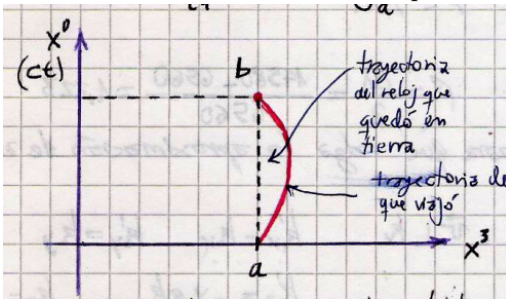 x⁰
(ct)
b
trayectoria
del reloj que
quedó en
tierra
trayectoria de
que viajó
x³
a